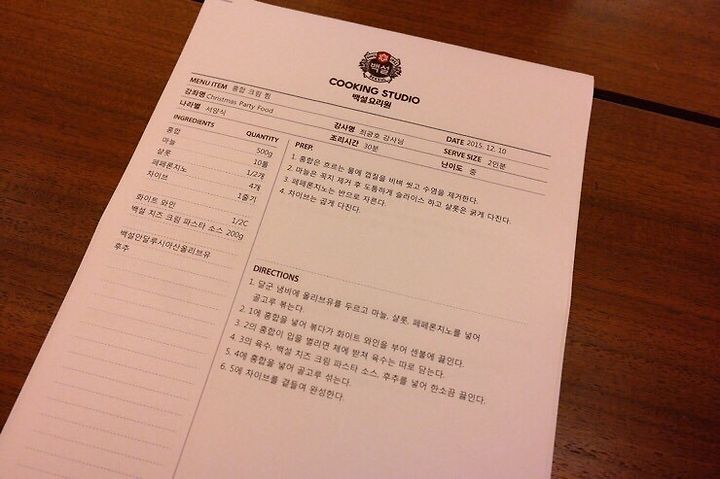 백설
COOKING STUDIO
백설요리원
MENU ITEM 홍합 크림 찜
강좌명 Christmas Party Food
강사명 최광호 강사님
DATE 2015. 12. 10
나라별 서양식
조리시간 30분
SERVE SIZE 2인분
난이도 중
INGREDIENTS QUANTITY
홍합 500g
마늘 10톨
샬롯 1/2개
페페론치노 4개
차이브 1줄기
화이트 와인 1/2C
백설 치즈 크림 파스타 소스 200g
백설안달루시아산올리브유
후추
PREP.
1. 홍합은 흐르는 물에 껍질을 비벼 씻고 수염을 제거한다.
2. 마늘은 꼭지 제거 후 도톰하게 슬라이스 하고 샬롯은 굵게 다진다.
3. 페페론치노는 반으로 자른다.
4. 차이브는 곱게 다진다.
DIRECTIONS
1. 달군 냄비에 올리브유를 두르고 마늘, 샬롯, 페페론치노를 넣어
골고루 볶는다.
2. 1에 홍합을 넣어 볶다가 화이트 와인을 부어 센불에 끓인다.
3. 2의 홍합이 입을 벌리면 체에 받쳐 육수는 따로 담는다.
4. 3의 육수, 백설 치즈 크림 파스타 소스, 후추를 넣어 한소끔 끓인다.
5. 4에 홍합을 넣어 골고루 섞는다.
6. 5에 차이브를 곁들여 완성한다.